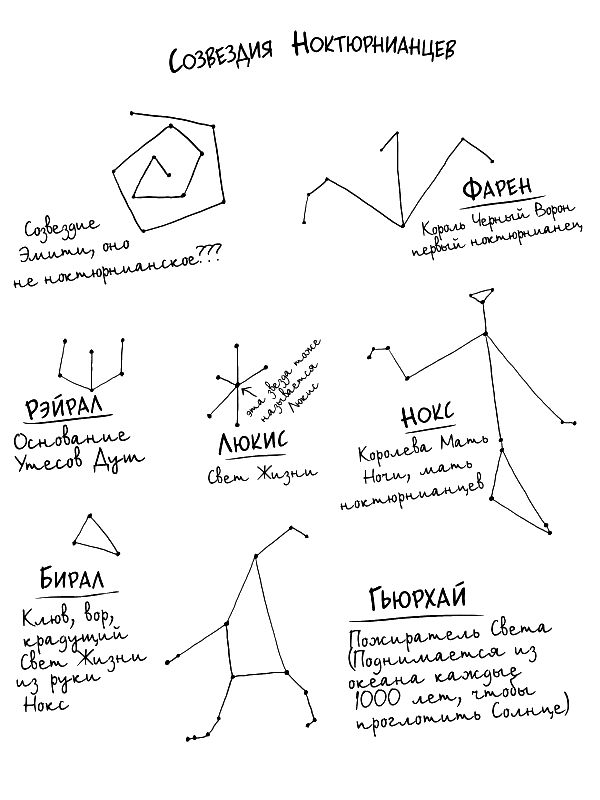 Созвездия Ноктюрнианцев
Созвездие
Эмити, оно
не ноктюрнианское???
Фарен
Король Черный Ворон
первый ноктюрнианец
Рэйрал
Основание
Утесов Душ
эта звезда тоже
называется
Люкис
Люкис
Свет Жизни
Нокс
Королева Мать
Ночи, мать
ноктюрнианцев
Бирал
Клюв, вор,
крадущий
Свет Жизни
из руки
Нокс
Гьюрхай
Пожиратель Света
(Поднимается из
океана каждые
1000 лет, чтобы
проглотить Солнце)